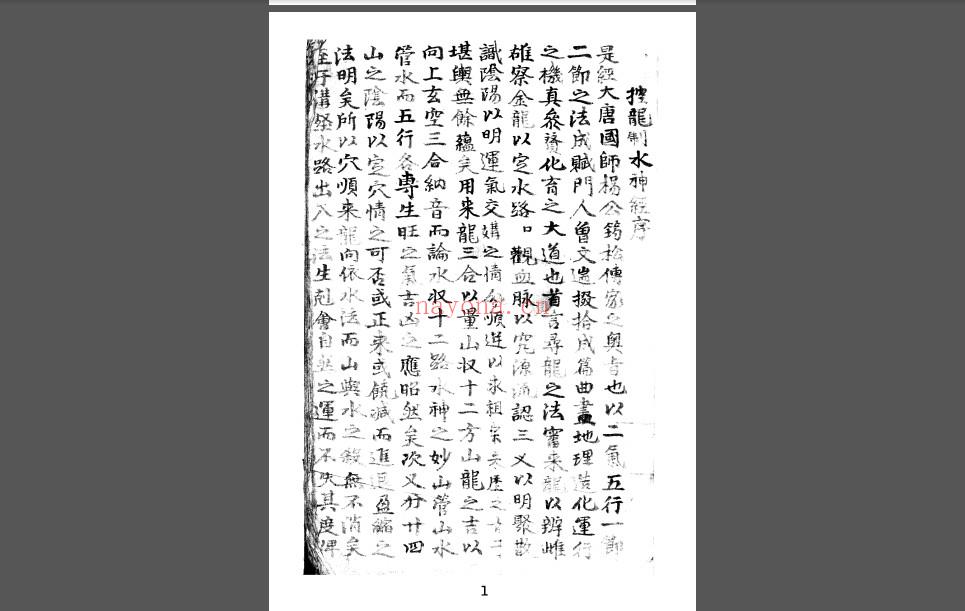 搜龍制水神經序
是經大唐國師楊公筠松傳家之奧旨也以二氣五行一節
二節之法成賦門人曾文遄掇拾成篇曲盡地理造化運行
之機真叅贊化育之大道也首言尋龍之法審来龍以辨雌
雄察金龍以定水路口觀血脉以究源流認三义以明聚散
識陰陽以明運氣交媾之情分順逆以求祖宗来歷之
堪輿無餘蘊矣用来龍三合以量山収十二方山龍之吉以
向上玄空三合納音而論水収十二路水神之妙山管山水
管水而五行各專生旺之氣吉凶之應昭然矣次又分廿四
山之陰陽以定穴情之可否或正来或饒減而進退盈縮之
法明矣所以穴順来龍向依水法而山與水之殺無不消矣
至于溝壑水路出入之法生剋會自然之運而不失其度俾
nayona.cn
1